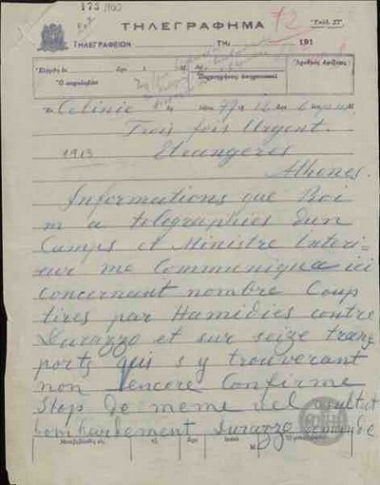 173/900
ΤΗΛΕΓΡΑΦΗΜΑ
72
ΤΗΛΕΓΡΑΦΕΙΟΝ
ΤΗΣ
191
Ἐλήφθη ἐκ
Ὁ παραλαβὼν
Ἀριθμὸς
Cetinie
Trois fois Urgent
1913
Etrangeres
Athenes
Informations que Roi
m a telegraphies dun
Camps et Ministre Interi-
eur me Communique ici
concernant nombre Coups
tires par Hamidies contre
Durazzo et sur seize trans
ports qui s y trouverant
non encore Confirme
Stop de meme
bombardement Durazzo
Μετεβιβάσθη εἰς